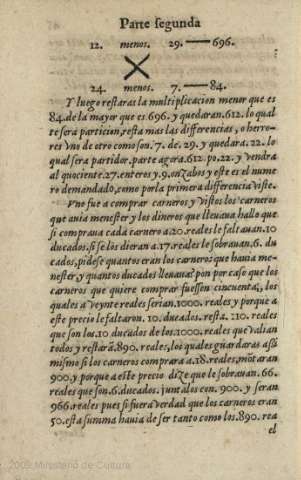 Parte ſegunda
12. menos. 29. — 696.
24. menos. 7. — 84.
Y luego reſtaras la multiplicacion menor que es
84. de la mayor que es 696. y quedaran. 612. lo qual
te ſera particion, reſta mas las differencias, o herro-
res vno de otro como ſon. 7. de. 29. y quedara. 22. lo
qual ſera partidor, parte agora. 612. po. 22. y vendra
al quociente. 27. enteros y. 9. onzabos y eſte es el nume
ro demandado, como por la primera differencia viſte.
Vno fue a comprar carneros y viſtos los carneros
que auia meneſter y los dineros que lleuaua hallo que
ſi compraua cada carnero a 20. reales le faltauan. 10
ducados. ſi ſe los dieran a. 17. reales le ſobrauan. 6. du
cados, pideſe quantos eran los carneros que hauia me-
neſter, y quantos ducados lleuaua? pon por caſo que los
carneros que quiere comprar fueſſen cincuenta, los
quales a veynte reales ſerian. 1000. reales y porque a
eſte precio le faltaron. 10. ducados. reſta. 110. reales
que ſon los. 10 ducados de los. 1000. reales que valian
todos y reſtarā. 890. reales, los quales guardaras aſſi
miſmo ſi los carneros comprara a. 18. reales, mōtaran
900. y porque a eſte precio dize que le ſobrauan. 66.
reales que ſon. 6. ducados. juntalos con. 900. y ſeran
966. reales pues ſi fuera verdad que los carneros eran
50. eſta ſumma hauia de ſer tanto como los. 890. rea
el
2009 Ministerio de Cultura